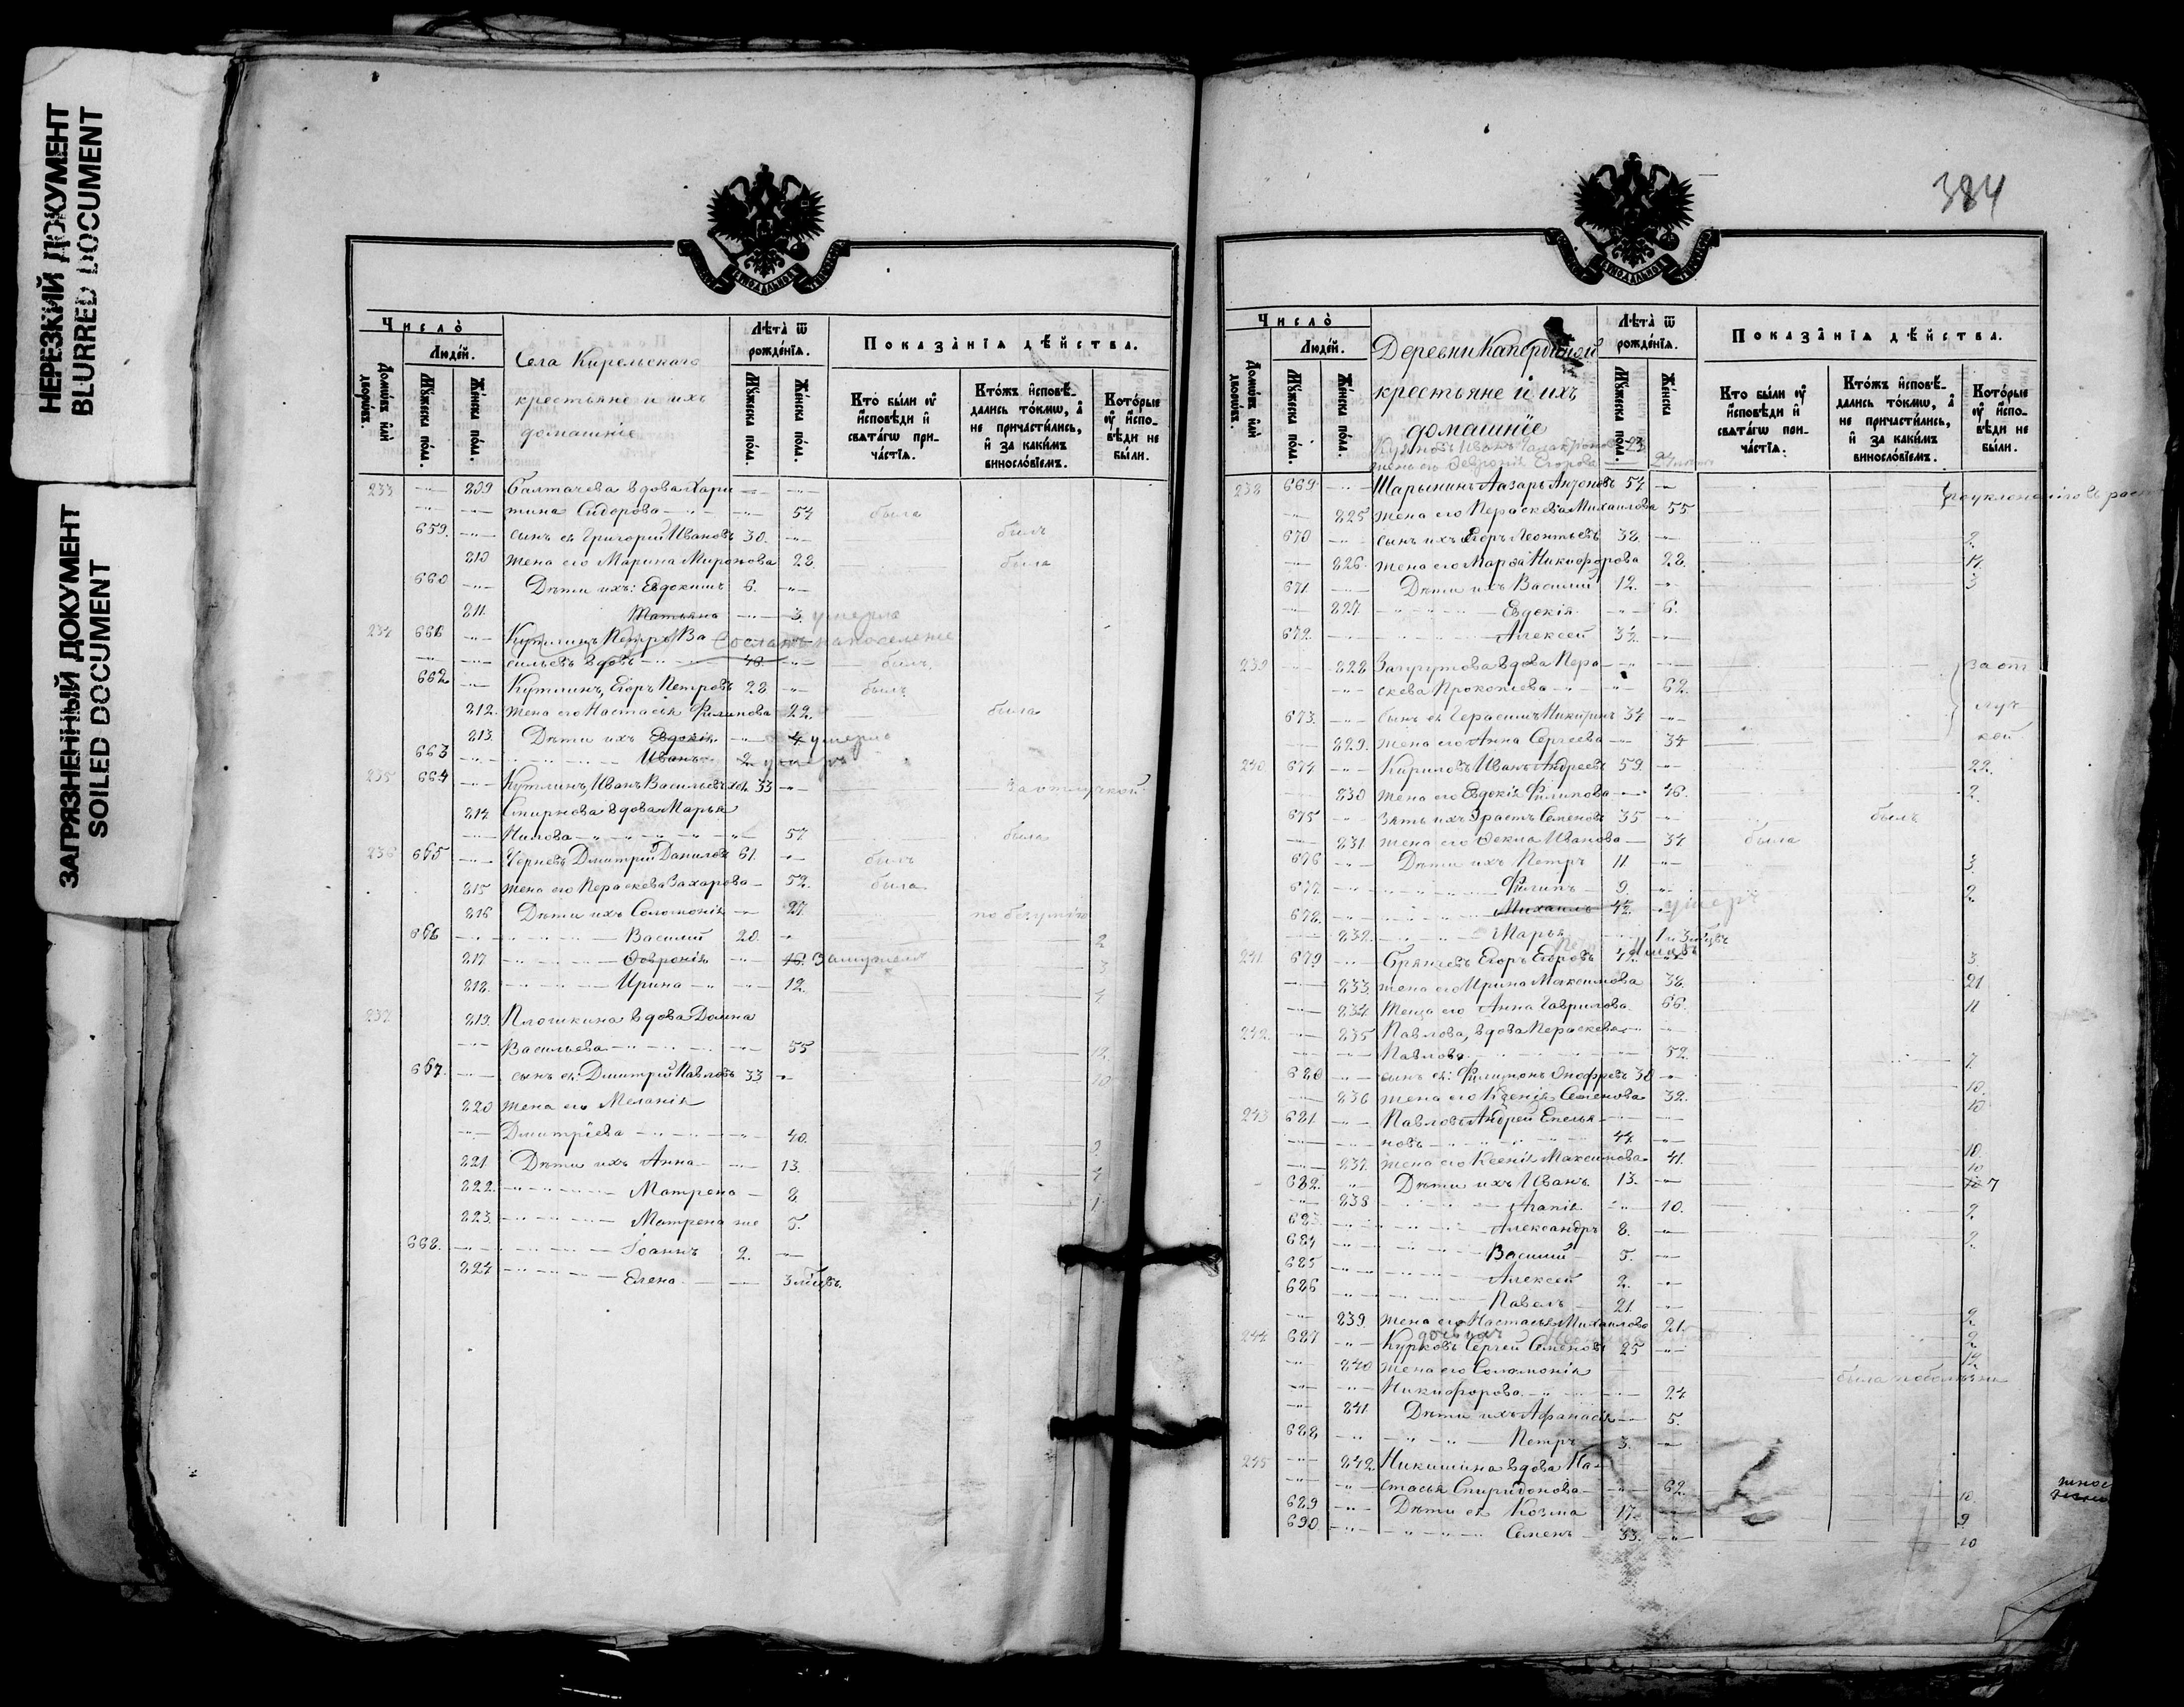 НЕРЕЗКИЙ ДОКУМЕНТ
BLURRED DOCUMENT
ЗАГРЯЗНЕННЫЙ ДОКУМЕНТ
SOILED DOCUMENT
Число̀
Людѐй.
Домѡвъ и҆лѝ дворѡвъ.
Мꙋжеска пола.
Женска пола.
Села Кирельскаго
крестьяне и ихъ
домашніе
Лѣта̀ ѿ рождѐнїѧ.
Мꙋжеска пола.
Женска пола.
Показа̀нїѧ дѣ́йства.
Кто̀ бы́ли ᲂу҆ и҆сповѣди и҆ свѧта́гѡ при-ча́стїѧ.
Кто́жъ и҆сповѣ-дались то́кмѡ, а҆ не причасти́лись, и҆ за каки́мъ винослóвїемъ.
Кото́рые ᲂу҆ и҆спо-вѣди не бы́ли.
233 809 Салтачева вдова Хари
тина Сидорова 54 была
659. сынъ ея Григорій Ивановъ 30. былъ
810 жена его Марина Миронова 28. была
660 Дѣти ихъ: Евдокимъ 6.
811. Татьяна 3. умерла
234 661 Кутлинъ Петръ Ва Сосланъ на поселеніе
сильевъ вдовъ 48. былъ
662. Кутлинъ, Егоръ Петровъ 28 былъ
812. жена его Настасья Филипова 22. была
813. Дѣти ихъ Евдокія 4 умерла
663 Иванъ 2 умеръ
235 664 Кутлинъ, Иванъ Васильевъ хол. 33 За отлучкой
814 Смирнова вдова Марья
Нилова 57 была
236 665 Черневъ Дмитрій Даниловъ 61. былъ
815 жена его Пераскева Захарова 52. была
816 Дѣти ихъ Соломонія 27 по безумію
666 Василій 20. 2
817 Февронія 16. Замужемъ 3
818. Ирина 12. 4
237 819. Плошкина вдова Домна
Васильева 55 12.
667. сынъ ея: Дмитрій Павловъ 33 10
820 жена его Меланія
Дмитріева 40. 9
821 Дѣти ихъ Анна 13. 4
822. Матрена 8. 1
823. Матрена же 5.
668. Іоаннъ 2.
824 Елена 3 мѣсяц.
384
Число̀
Людѐй.
Домѡвъ и҆лѝ дворѡвъ.
Мꙋжеска пола.
Женска пола.
Деревни Капердиной
крестьяне и ихъ
домашніе
Лѣта̀ ѿ рождѐнїѧ.
Мꙋжеска пола.
Женска
Показа̀нїѧ дѣ́йства.
Кто̀ бы́ли ᲂу҆ и҆сповѣди и҆ свѧта́гѡ при-ча́стїѧ.
Кто́жъ и҆сповѣ-дались то́кмѡ, а҆ не причасти́лись, и҆ за каки́мъ винослóвїемъ.
Кото́рые ᲂу҆ и҆спо-вѣди не бы́ли.
Иванъ 23
жена его Февронія Егорова 24
238 669 Шарынинъ Лазарь Антоновъ 57
825 жена его Пераскева Михаилова 55
670 сынъ ихъ Егоръ Леонтьевъ 38. 2
826. жена его Марѳа Никифорова 28. 4
671 Дѣти ихъ Василій 12. 3
827. Евдокія 6.
672. Алексей 3½
239 828 Загрутова вдова Пера за от
скева Прокопіева 62.
673. сынъ ея Герасимъ Никитинъ 34 луч
829. жена его Анна Сергеева 34 кой
240 674 Кириловъ Иванъ Андреевъ 59. 22.
830 жена его Евдокія Филипова 46. 2
675 Зять ихъ Эрастъ Семеновъ 35 былъ
831 жена его Ѳекла Иванова 34 была
676 Дѣти ихъ Петръ 11 3.
677. Филипъ 9. 2
678. Михаилъ 4½. умеръ
832. Марья 1 и 3 мѣсяц
241 679 Брянцевъ Егоръ Егоровъ 42. 3.
833. жена его Ирина Максимова 38. 21
834 Теща его Анна Гаврилова 66. 11
242. 835 Павлова, вдова Пераскева
Павлова 52. 7.
680 сынъ ея: Филимонъ Онофревъ 30 10.
836 жена его Ксенія Семенова 32. 10
243 681 Павловъ Андрей Емелья
новъ 44 10.
837. жена его Ксенія Максимова 41. 10
682. Дѣти ихъ Иванъ 13. 7
838 Агапія 10. 2
683. Александръ 8. 2.
684 Василій 5.
685 Алексей 2.
686 Павелъ 21.
839 жена его Настасья Михаилова 21. 2
244 687 Курковъ Сергей Семеновъ 25 2
840 жена его Соломонія
Никифорова 24 была
841 Дѣти ихъ Афанасія 5.
688 Петръ 3.
245 842 Никишина вдова На
стасья Спиридонова 62. 10.
689 Дѣти ея Козма 17. 9
690 Семенъ 33. 10